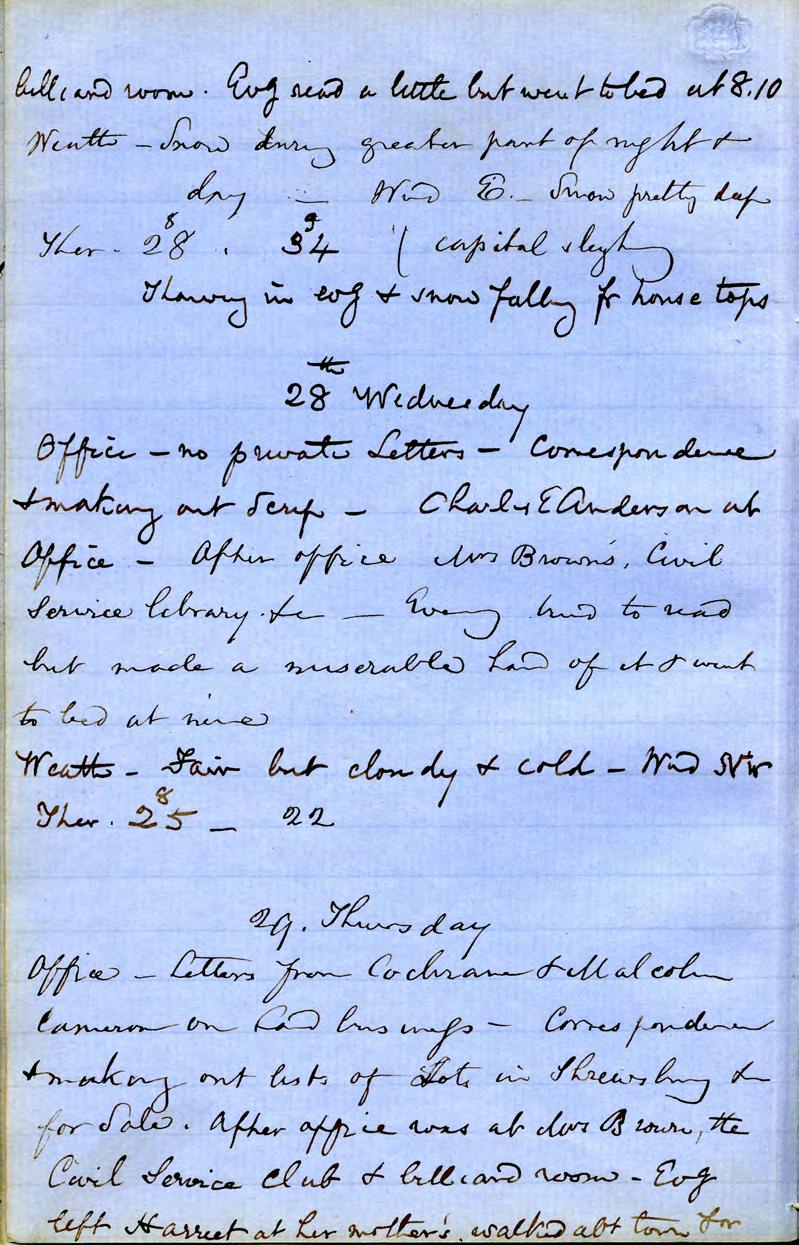 billiard room. Evg read a little but went to bed at 8.10
Weath - Snow during greater part of night &
day - Wind E. - Snow pretty deep
Ther - 28 8 . 34 9 ( capital sleighg
Thawing in evg & snow falling fr house tops
28th Wednesday
Office - no private Letters - Correspondence
& making out Scrip - Charles E Anderson at
Office - After office Mrs Brown's, Civil
Service library &c - Eveng tried to read
but made a miserable hand of it & went
to bed at nine
Weath - Fair but cloudy & cold - Wind NW
Ther. 25 8 - 22
29. Thursday
Office - Letters from Cochrane & Malcolm
Cameron on land business - Correspondence
& making out lists of Lots in Shrewsbury &c
for Sale. After office was at Mrs Brown, the
Civil Service Club & billiard room - Evg
left Harriet at her mother's, walked abt town for